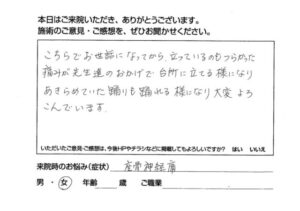 本日はご来院いただき、ありがとうございます。
施術のご意見・ご感想を、ぜひお聞かせください。
こちらでお世話になってから、立っているのもつらかった
痛みが先生達のおかげで台所に立てる様になり
あきらめていた踊りも踊れる様になり大変よろ
こんでいます。
いただいたご意見・ご感想は、今後HPやチラシなどに掲載してもよろしいですか? はい いいえ
来院時のお悩み(症状) 坐骨神経痛
男・女 年齢 歳 ご職業